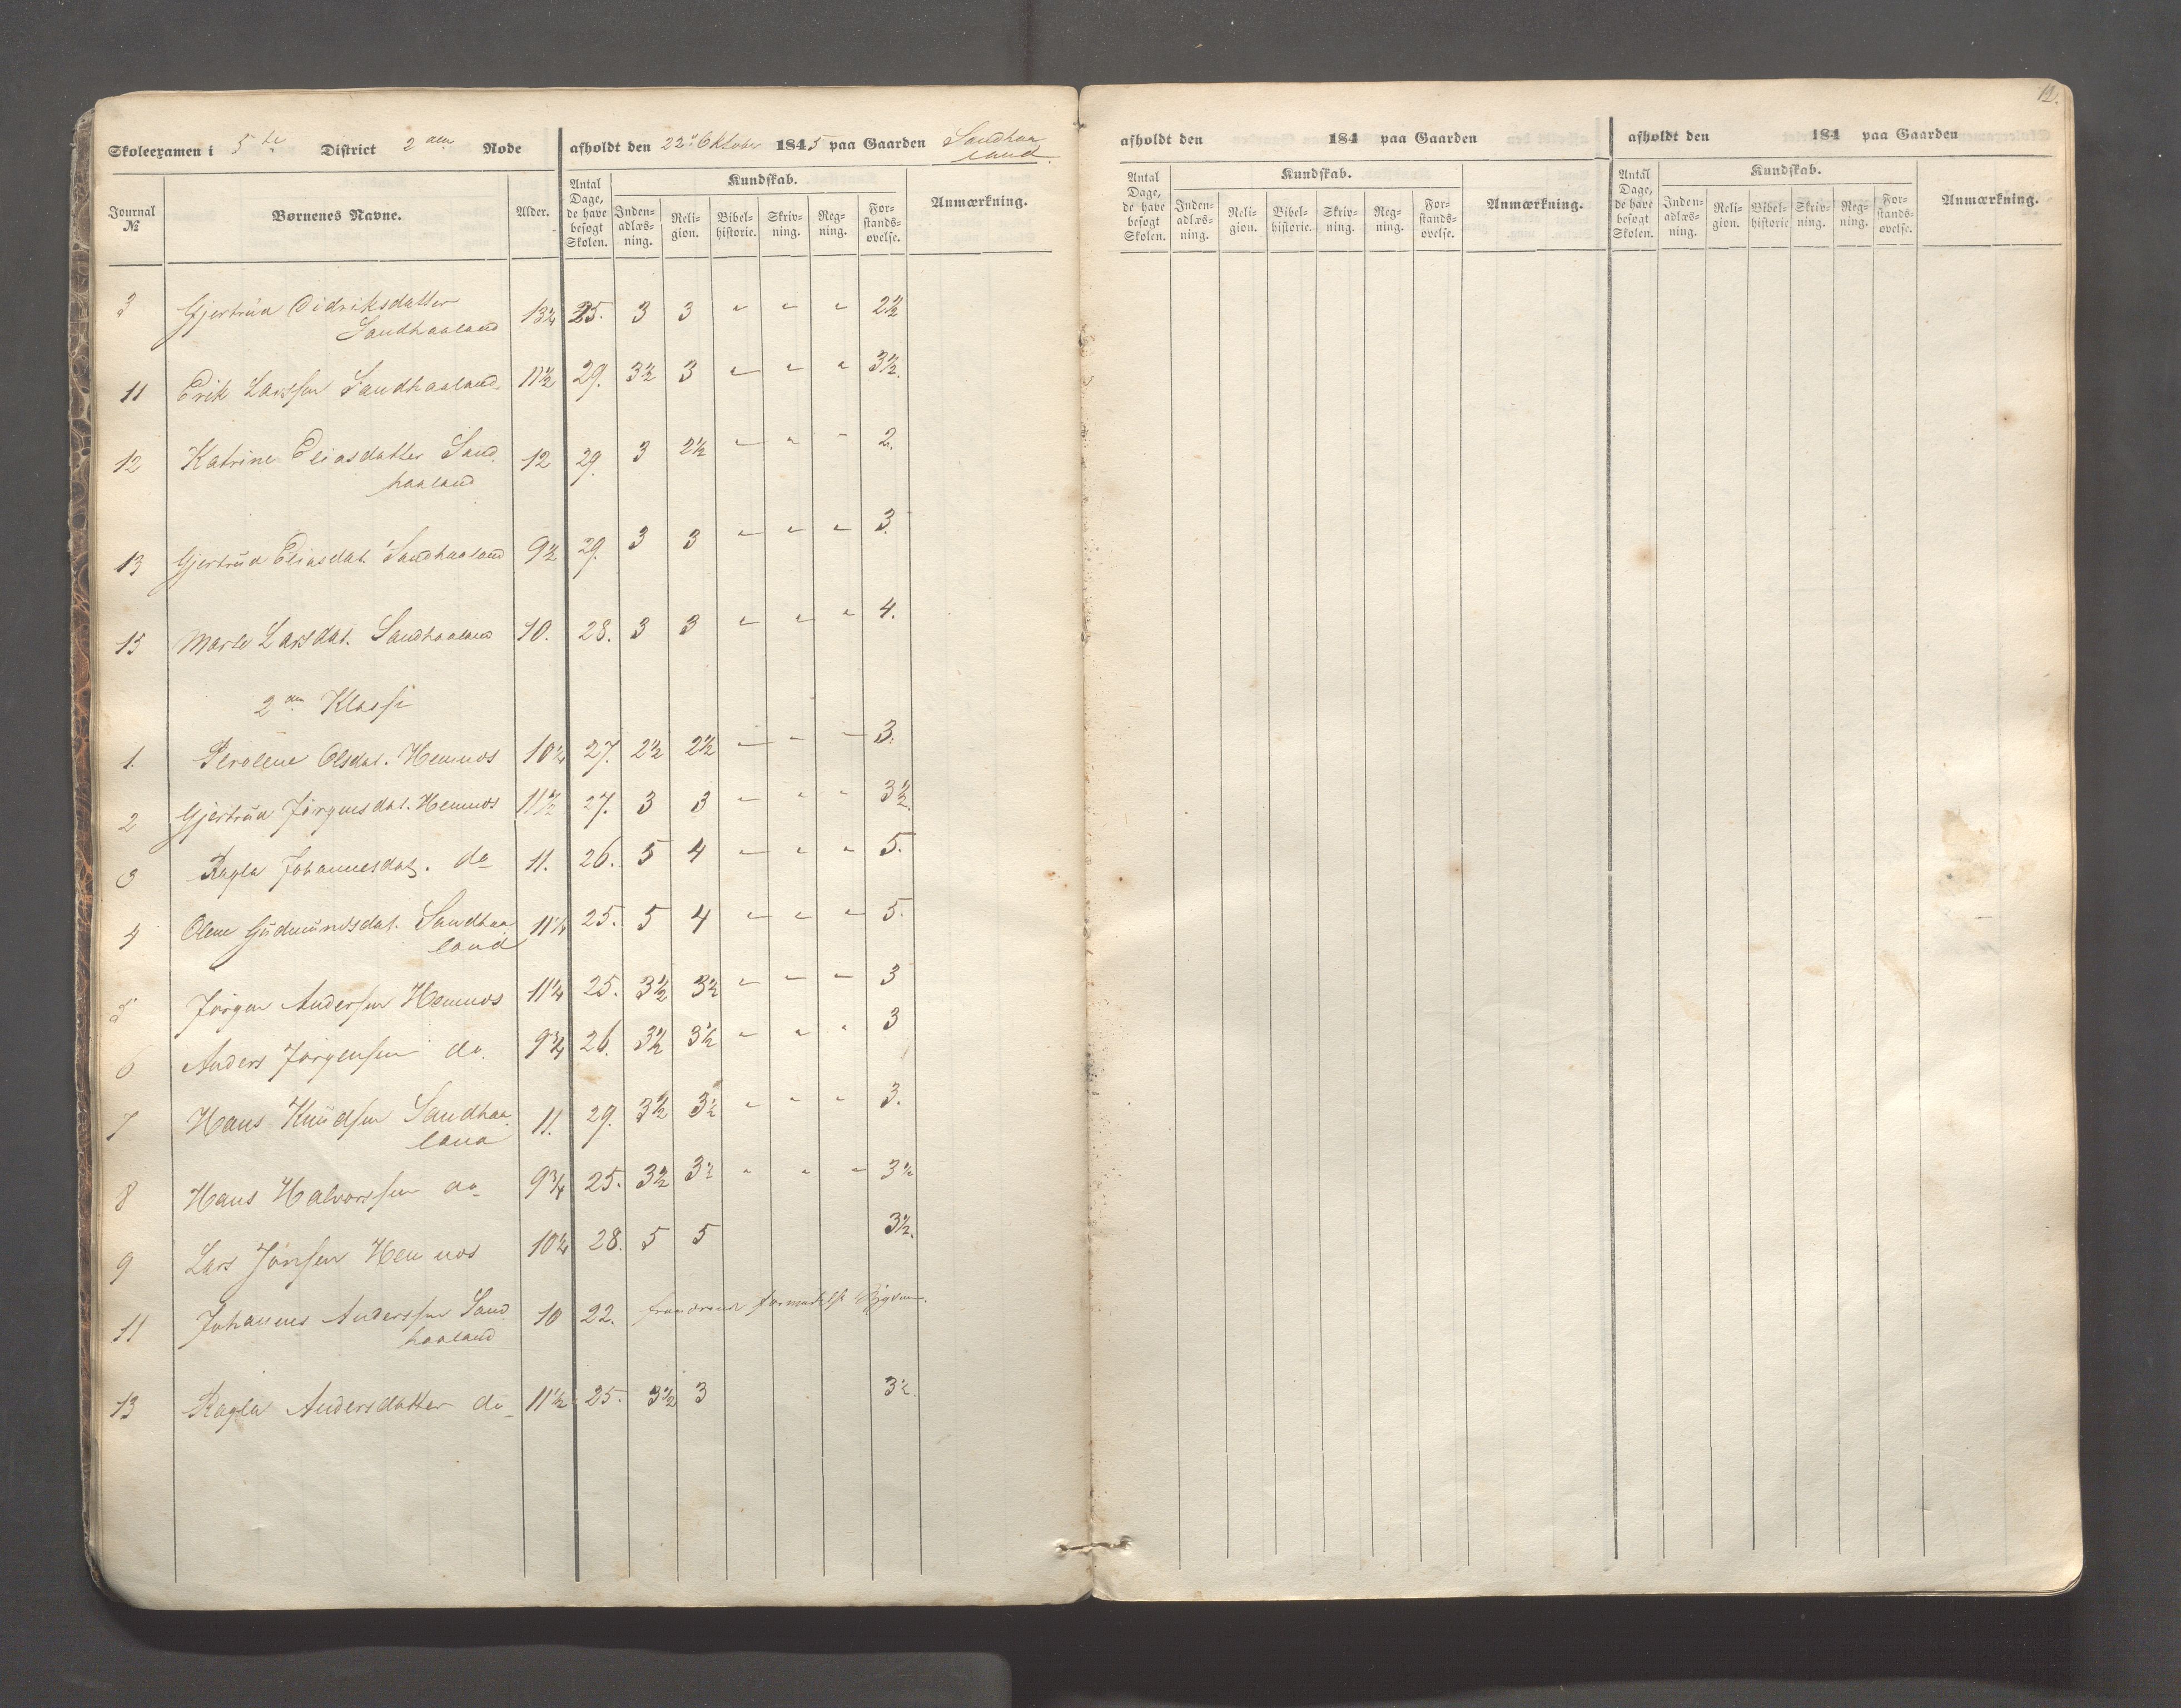 Skoleexamen i 5te District 2den Rode afholdt den 22de Oktober 1845 paa Gaarden Sandhaa
land.
Journal № Børnenes Navne. Alder. Antal Dage, de have besøgt Skolen. Kundskab. Inden-adlæs-ning. Reli-gion. Bibel-historie. Skriv-ning. Reg-ning. For-stands-øvelse. Anmærkning.
3 Gjertrud Didriksdatter
Sandhaaland 13¼ 25. 3 3 " " " 2½
11 Erik Larssen Sandhaaland 11½ 29. 3½ 3 " " " 3½.
12 Katrine Eliasdatter Sand
haaland 12 29. 3 2½ " " " 2.
13 Gjertrud Eliasdat. Sandhaaland 9½ 29. 3 3 " " " 3.
15 Larsdat. Sandhaaland 10. 28. 3 3 " " " 4.
2den Klasse
1. Olsdat. Hemnes 10¼ 27. 2½ 2½ " " " 3.
2 Gjertrud Jørgensdat. Hemnes 11½ 27. 3 3 " " " 3½.
3 Ragla Johannesdat. do 11. 26. 5 4 " " " 5.
4 Olene Gudmundsdat. Sandhaa
land 11¼ 25. 5 4 " " " 5.
5 Jørgen Andersen Hemnes 11¼ 25. 3½ 3½ " " " 3
6 Anders Jørgensen do. 9¾ 26. 3½ 3½ " " " 3
7 Hans Knudsen Sandhaa
land 11. 29. 3½ 3½ " " " 3.
8 Hans Halvorssen do 9¾ 25. 3½ 3½ " " " 3½
9 Lars Jonsen Hemnes 10¼ 28. 5 5 3½.
11 Johannes Anderssen Sand
haaland 10 22. formedelst
13 Ragla Andersdatter do 11½ 25. 3½ 3 3½.
12.
afholdt den 184 paa Gaarden
Antal Dage, de have besøgt Skolen. Kundskab. Inden-adlæs-ning. Reli-gion. Bibel-historie. Skriv-ning. Reg-ning. For-stands-øvelse. Anmærkning.
afholdt den 184 paa Gaarden
Antal Dage, de have besøgt Skolen. Kundskab. Inden-adlæs-ning. Reli-gion. Bibel-historie Skriv-ning. Reg-ning. For-stands-øvelse. Anmærkning.